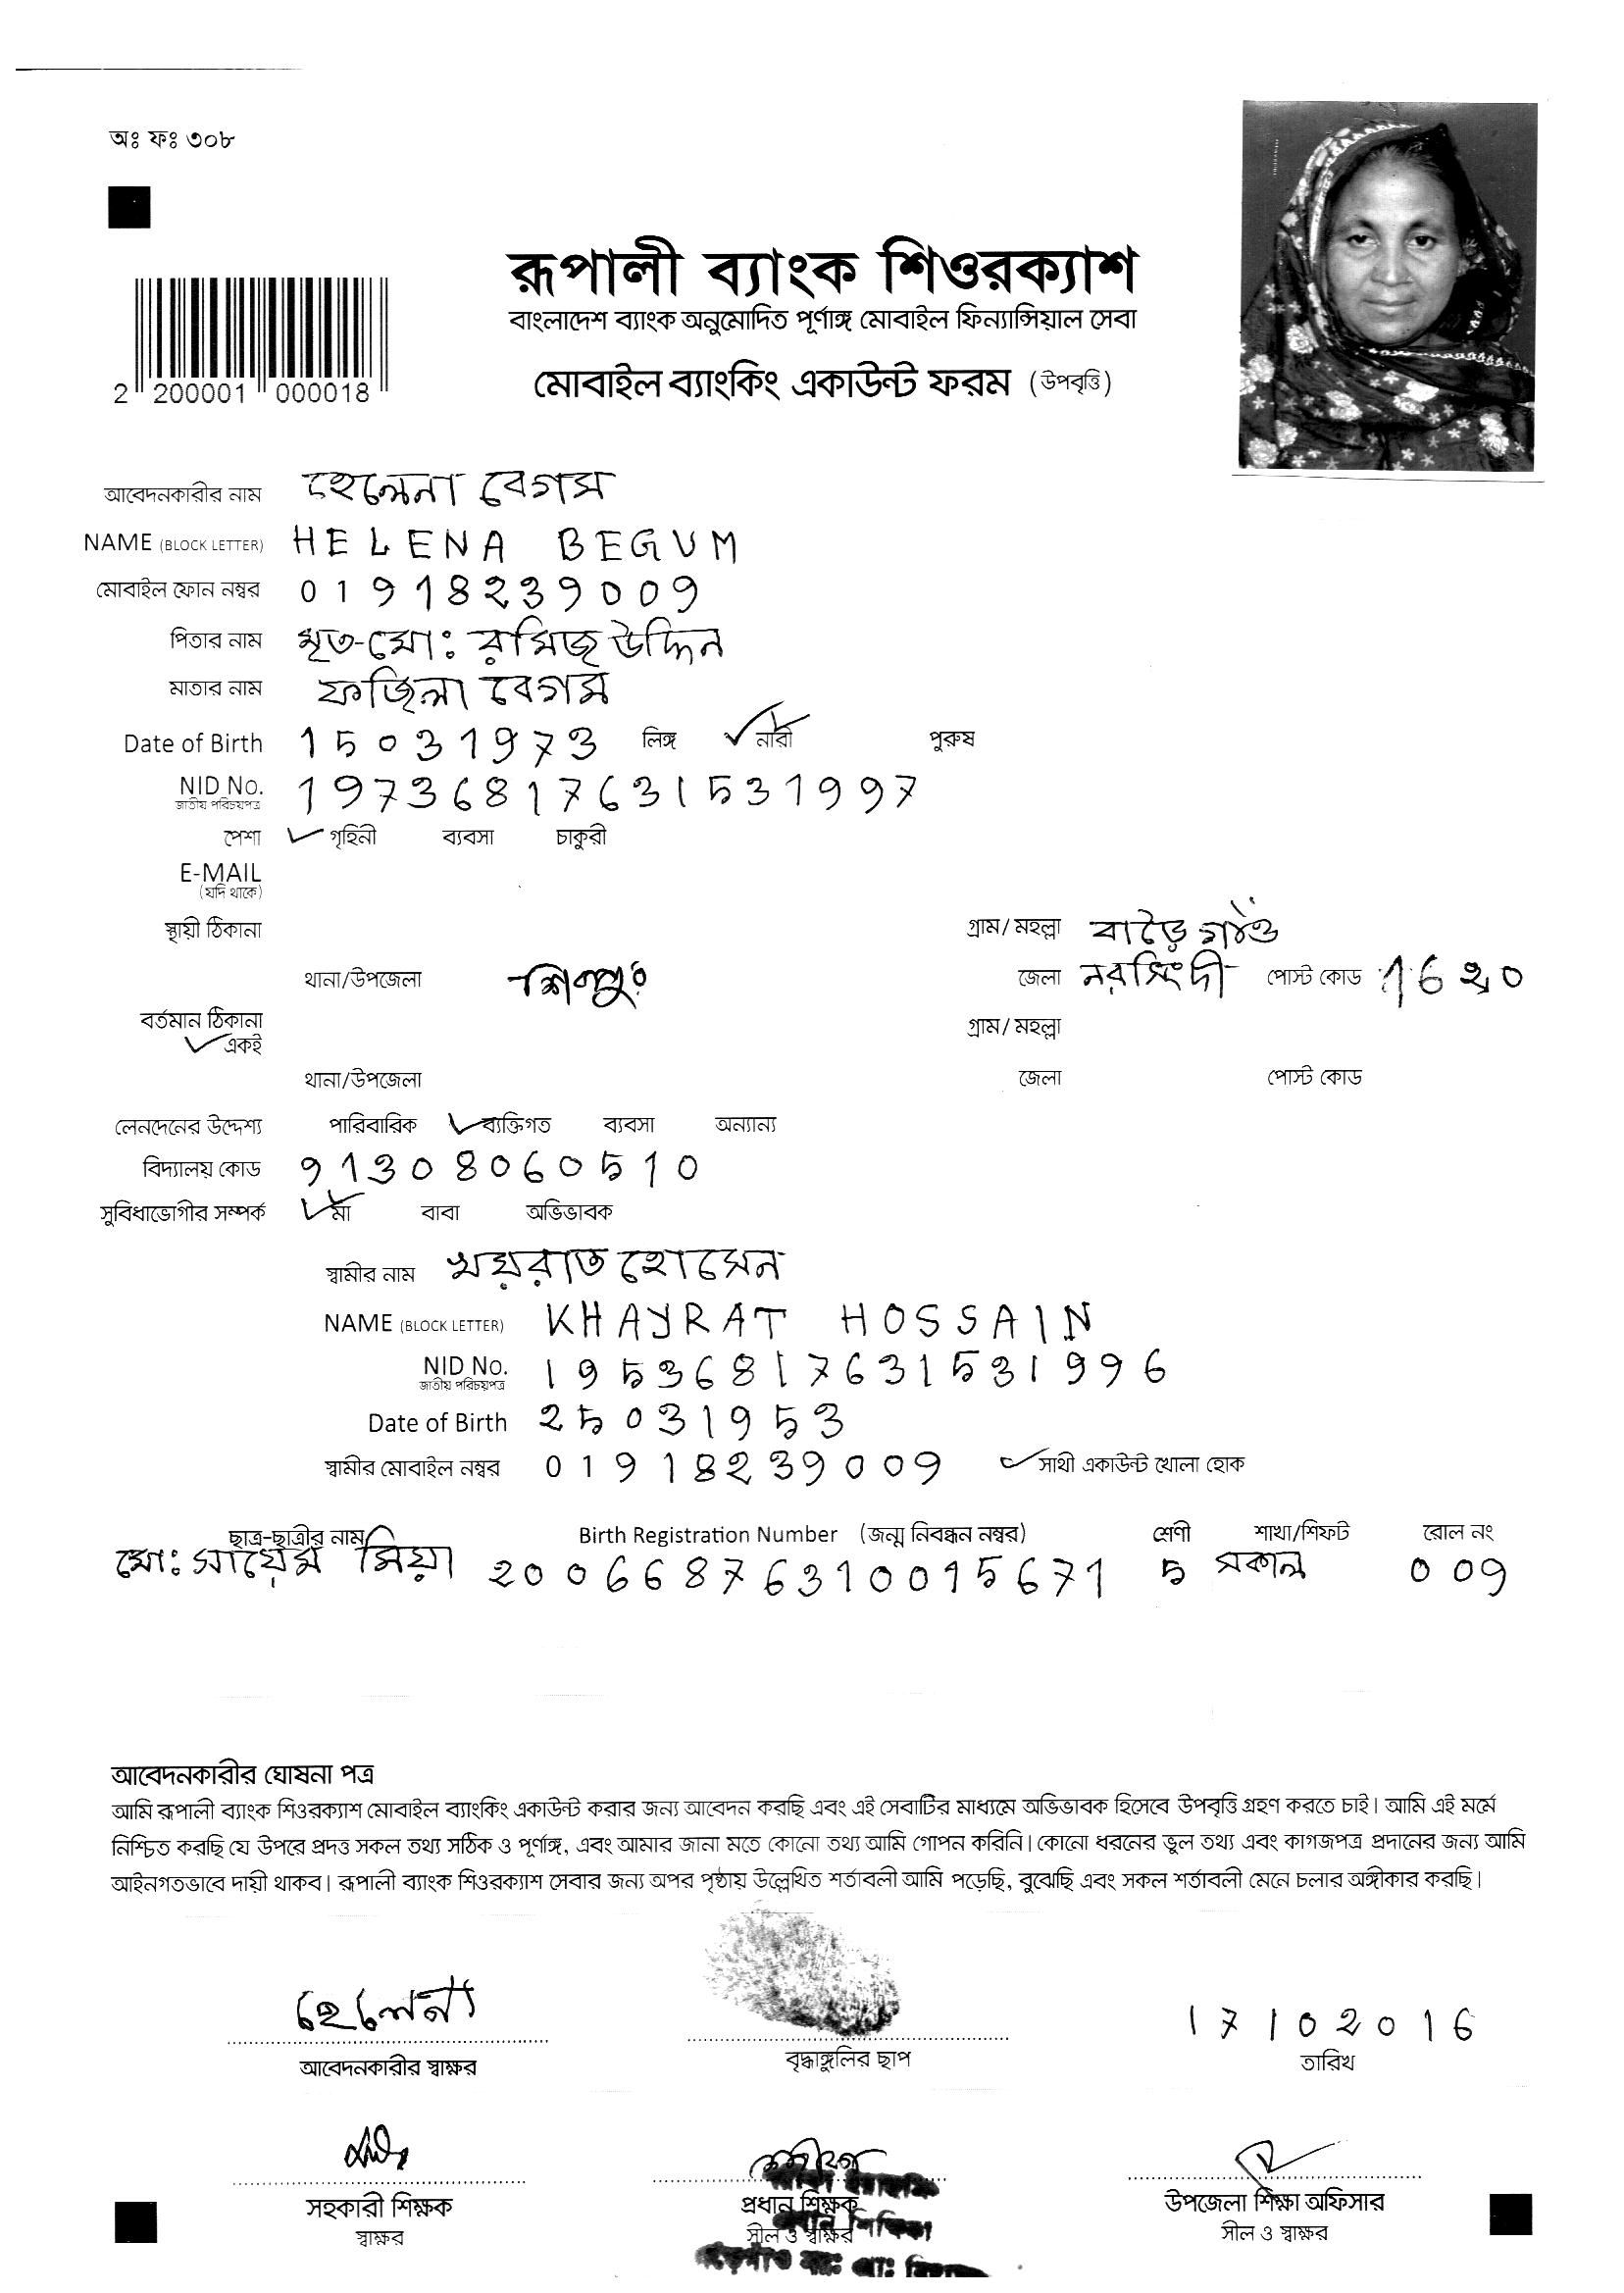 অঃ ফঃ ৩০৮
রূপালী ব্যাংক শিওরক্যাশ
বাংলাদেশ ব্যাংক অনুমোদিত পূর্ণাঙ্গ মোবাইল ফিন্যান্সিয়াল সেবা
2 200001 000018
মোবাইল ব্যাংকিং একাউন্ট ফরম (উপবৃত্তি)
আবেদনকারীর নাম হেলেনা বেগম
NAME (BLOCK LETTER) HELENA BEGUM
মোবাইল ফোন নম্বর 01918239009
পিতার নাম মৃত-মো: রমিজ উদ্দিন
মাতার নাম ফজিলা বেগম
Date of Birth 15031973 লিঙ্গ নারী পুরুষ
NID No. 19736817631531997
জাতীয় পরিচয়পত্র
পেশা গৃহিনী ব্যবসা চাকুরী
E-MAIL
(যদি থাকে)
স্থায়ী ঠিকানা গ্রাম/ মহল্লা বাড়ৈগাঁও
থানা/উপজেলা শিবপুর জেলা নরসিংদী পোস্ট কোড 1620
বর্তমান ঠিকানা গ্রাম/ মহল্লা
একই
থানা/উপজেলা জেলা পোস্ট কোড
লেনদেনের উদ্দেশ্য পারিবারিক ব্যক্তিগত ব্যবসা অন্যান্য
বিদ্যালয় কোড 91308060510
সুবিধাভোগীর সম্পর্ক মা বাবা অভিভাবক
স্বামীর নাম খয়রাত হোসেন
NAME (BLOCK LETTER) KHAYRAT HOSSAIN
NID No. 19536817631531996
জাতীয় পরিচয়পত্র
Date of Birth 25031953
স্বামীর মোবাইল নম্বর 01918239009 সাথী একাউন্ট খোলা হোক
ছাত্র-ছাত্রীর নাম Birth Registration Number (জন্ম নিবন্ধন নম্বর) শ্রেণী শাখা/শিফট রোল নং
মো: সায়েম মিয়া 20066876310015671 5 সকাল 009
আবেদনকারীর ঘোষনা পত্র
আমি রূপালী ব্যাংক শিওরক্যাশ মোবাইল ব্যাংকিং একাউন্ট করার জন্য আবেদন করছি এবং এই সেবাটির মাধ্যমে অভিভাবক হিসেবে উপবৃত্তি গ্রহণ করতে চাই। আমি এই মর্মে
নিশ্চিত করছি যে উপরে প্রদত্ত সকল তথ্য সঠিক ও পূর্ণাঙ্গ, এবং আমার জানা মতে কোনো তথ্য আমি গোপন করিনি। কোনো ধরনের ভুল তথ্য এবং কাগজপত্র প্রদানের জন্য আমি
আইনগতভাবে দায়ী থাকব। রূপালী ব্যাংক শিওরক্যাশ সেবার জন্য অপর পৃষ্ঠায় উল্লেখিত শর্তাবলী আমি পড়েছি, বুঝেছি এবং সকল শর্তাবলী মেনে চলার অঙ্গীকার করছি।
হেলেনা 17102016
আবেদনকারীর স্বাক্ষর বৃদ্ধাঙ্গুলির ছাপ তারিখ
সহকারী শিক্ষক প্রধান শিক্ষক উপজেলা শিক্ষা অফিসার
স্বাক্ষর সীল ও স্বাক্ষর সীল ও স্বাক্ষর